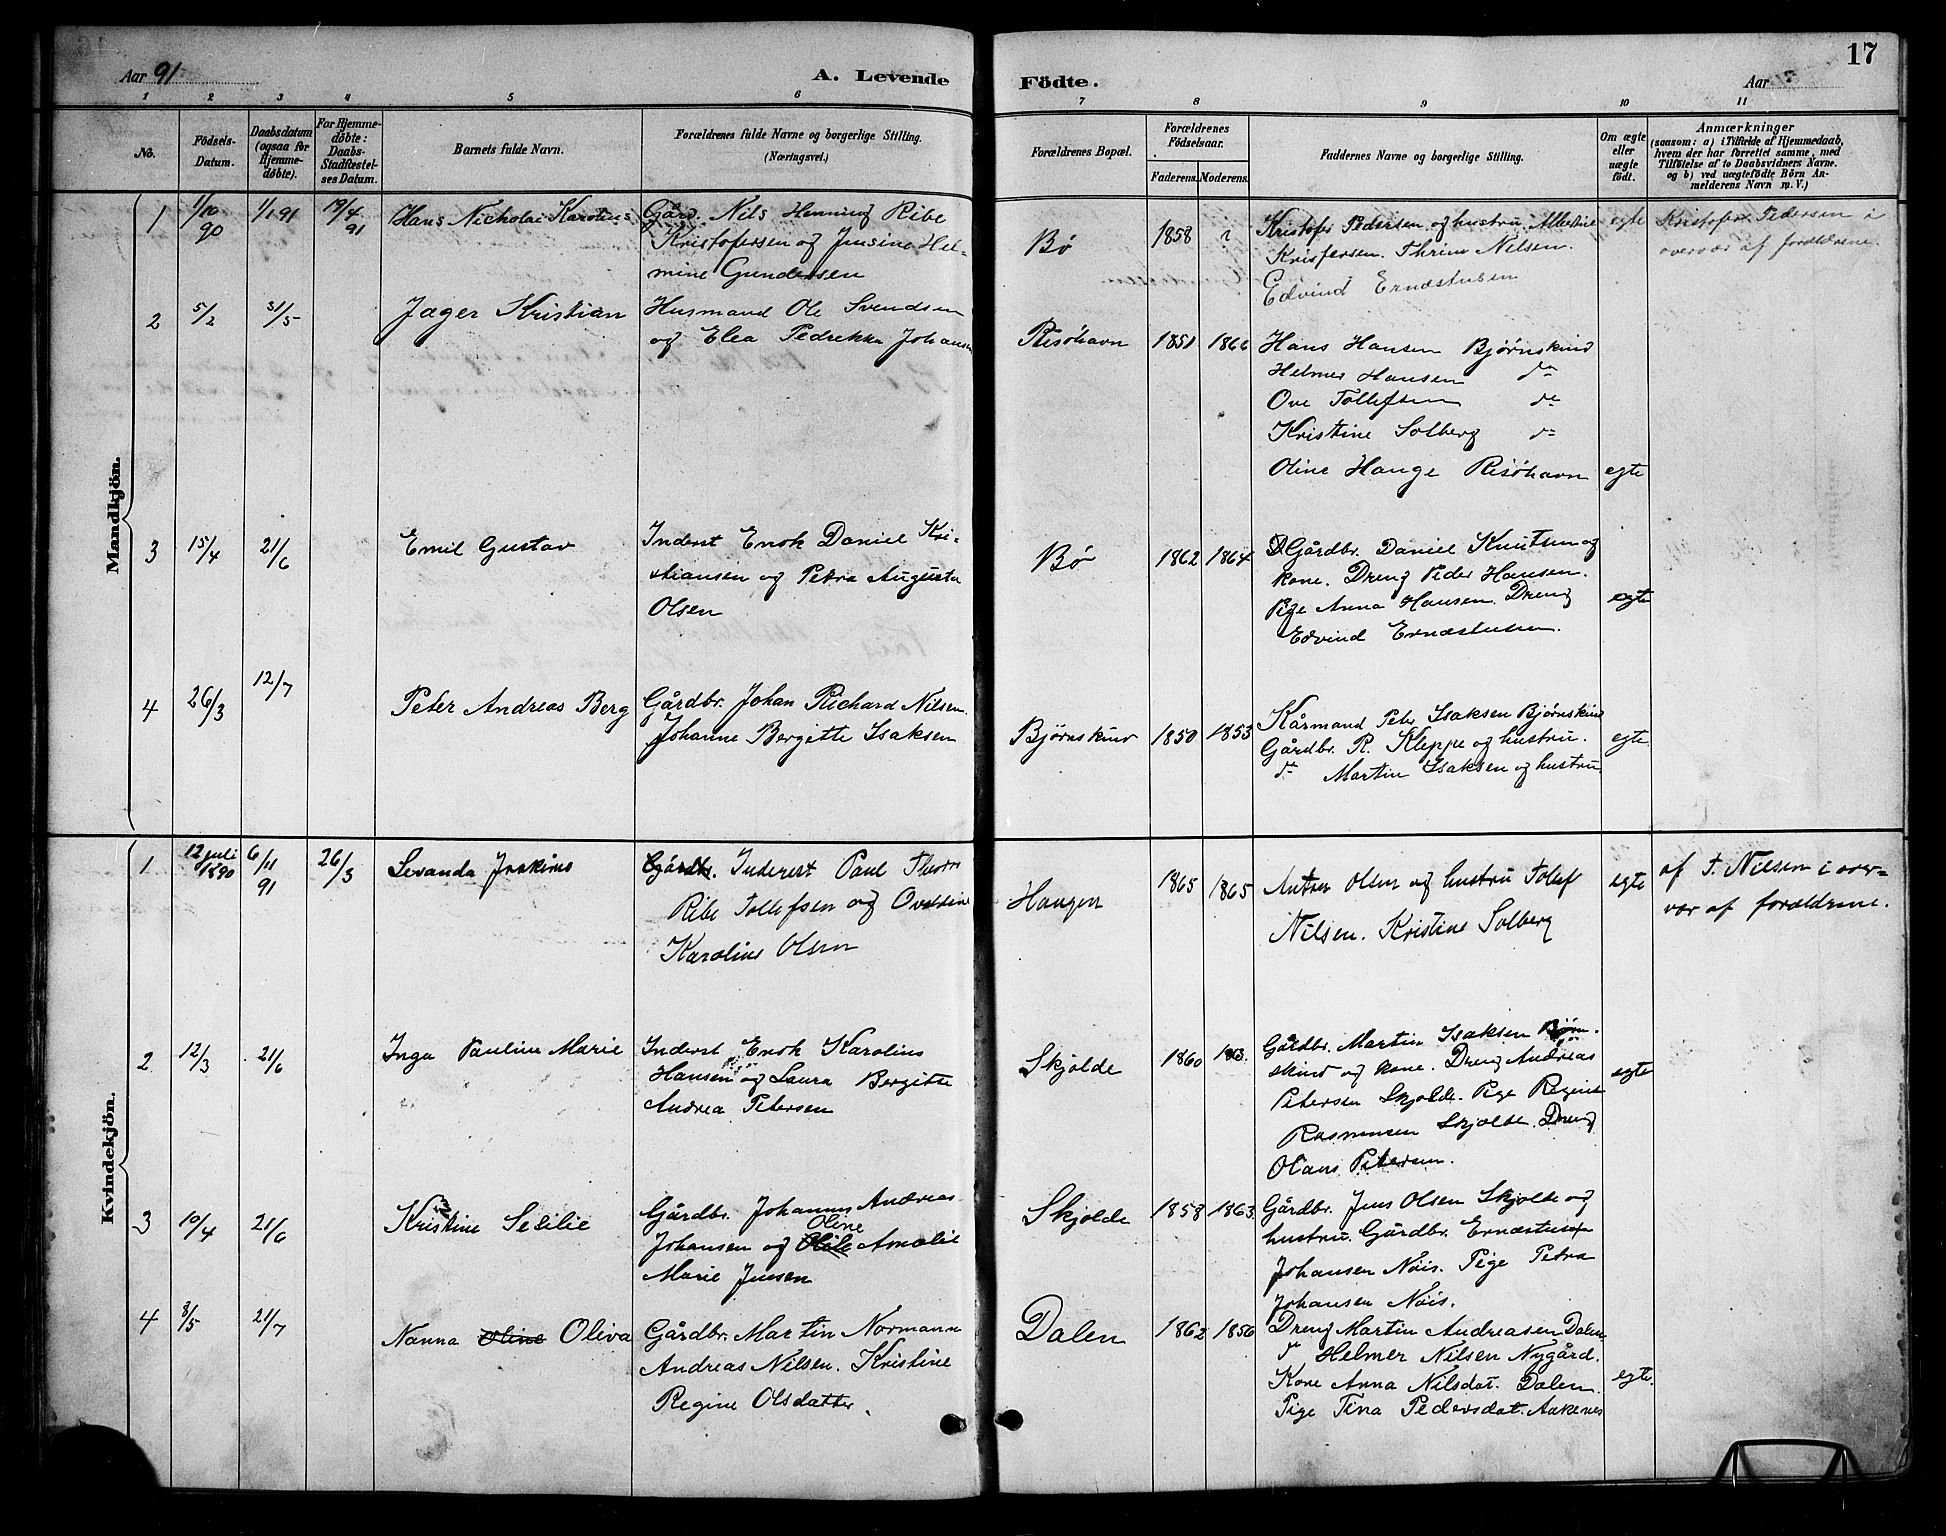 Aar 91
A. Levende
Födte.
Aar
17
1 2 3 4 5 6 7 8 9 10 11
No.
Födsels-
Datum.
Daabsdatum
(ogsaa for
Hjemme-
döbte).
For Hjemme-
döbte:
Daabs-
Stadfæstel-
ses Datum.
Barnets fulde Navn.
Forældrenes fulde Navne og borgerlige Stilling.
(Næringsvei.)
Forældrenes Bopæl.
Forældrenes
Födselsaar.
Faderens. Moderens.
Faddernes Navne og borgerlige Stilling.
Om ægte
eller
uægte
födt.
Anmærkninger
(saasom: a) i Tilfælde af Hjemmedaab,
hvem der har forrettet samme, med
Tilföielse af to Daabsvidners Navne,
og b) ved uægtefödte Börn An-
melderens Navn m. V.)
Mandkjön.
1
1/10
90
1/1 91
19/4
91
Hans Nicholai Karolius
Gård. Nils Henning Ribe
Kristofersen og Jensine Hel-
mine Gundersen
Bø
1858
Kristofer Pedersen og hustru Albertine
Krisfersen. Thrine Nilsen.
Edvind Ernæstusen
egte
Kristofer Pedersen i
overvær af forældrene.
2
5/2
31/5
Jæger Kristian
Husmand Ole Svendsen
og Elea Pedrekke Johansen
Risøhavn
1851
1866
Hans Hansen Bjørnskind
Helmer Hansen do
Ove Tollefsen do
Kristine Solberg do
Oline Hauge Risøhavn
egte
3
15/4
21/6
Emil Gustav
Inderst Enok Daniel Kri-
stiansen og Petra Augusta
Olsen
Bø
1862
1864
Gårdbr. Daniel Knutsen og
kone. Dreng Peder Hansen.
Pige Anna Hansen. Dreng
Edvind Ernæstusen.
egte
4
26/3
12/7
Peter Andreas Berg
Gårdbr. Johan Richard Nilsen.
Johanne Bergitte Isaksen
Bjørnskind
1850
1853
Kårmand Peter Isaksen Bjørnskind
Gårdbr. R. Kleppe og hustru.
do Martin Isaksen og hustru.
egte
Kvindekjön.
1
12 juli
1890
6/11
91
26/3
Levanda Joakime
Gårdbr. Inderest Paul Thorn
Ribe Tollefsen og Ovedine
Karoline Olsen
Haugen
1865
1865
Anton Olsen og hustru Tollef
Nilsen. Kristine Solberg
egte
af T. Nilsen i over-
vær af forældrene.
2
12/3
21/6
Inga Pauline Marie
Inderst Enok Karolius
Hansen og Laura Bergitte
Andrea Petersen
Skjolde
1860
Gårdbr. Martin Isaksen Bjørn-
skind og kone. Dreng Andreas
Petersen Skjolde. Pige Regine
Rasmussen Skjolde. Dreng
Olaus Petersen.
egte
3
10/4
21/6
Kristine Sesilie
Gårdbr. Johannes Andreas
Oline
Johansen og Amalie
Marie Jensen
Skjolde
1858
1863.
Gårdbr. Jens Olsen Skjolde og
hustru. Gårdbr. Ernæstus
Johansen Nøis. Pige Petra
Johansen Nøis.
4
8/5
21/7
Nanna Oline Oliva
Gårdbr. Martin Normann
Andreas Nilsen. Kristine
Regine Olsdatter.
Dalen
1862
1856
Dreng Martin Andreasen Dalen.
do Helmer Nilsen Nygård.
Kone Anna Nilsdat. Dalen.
Pige Tina Pedersdat. Aakenes
egte.